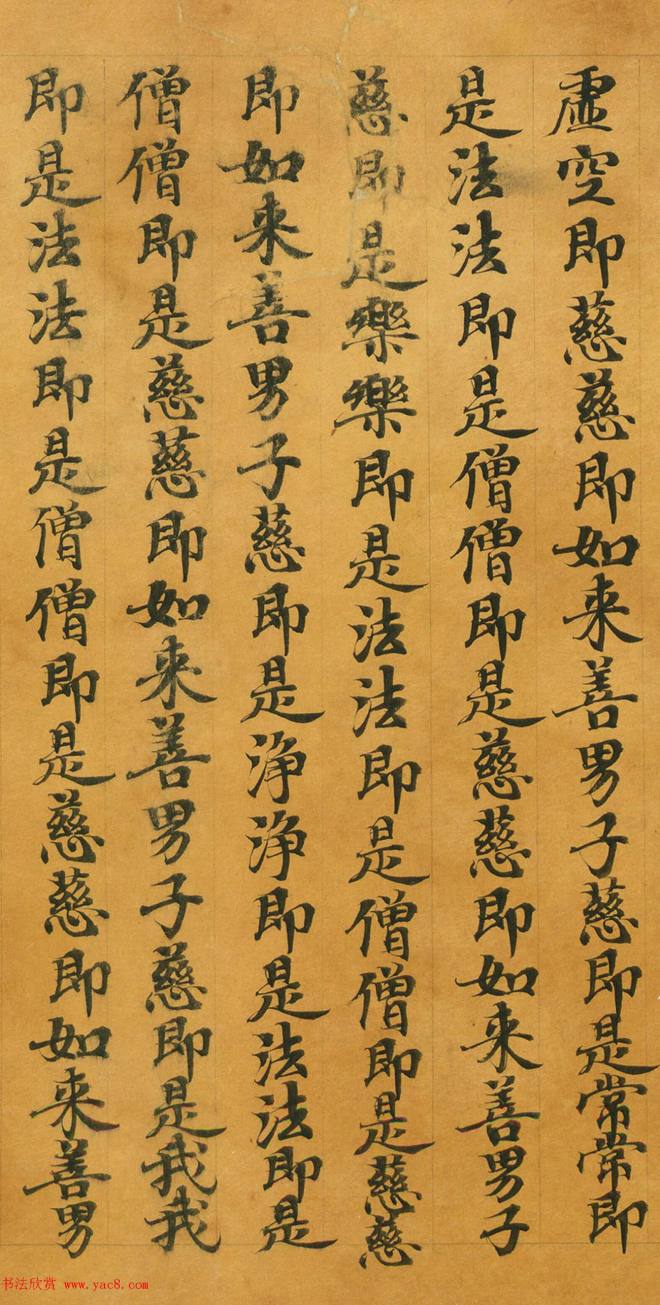 虚空即慈慈即如来善男子慈即是常常即
是法法即是僧僧即是慈慈即如来善男子
慈即是樂樂即是法法即是僧僧即是慈慈
即如来善男子慈即是浄浄即是法法即是
僧僧即是慈慈即如来善男子慈即是我我
即是法法即是僧僧即是慈慈即如来善男
书法欣赏 www.yac8.com